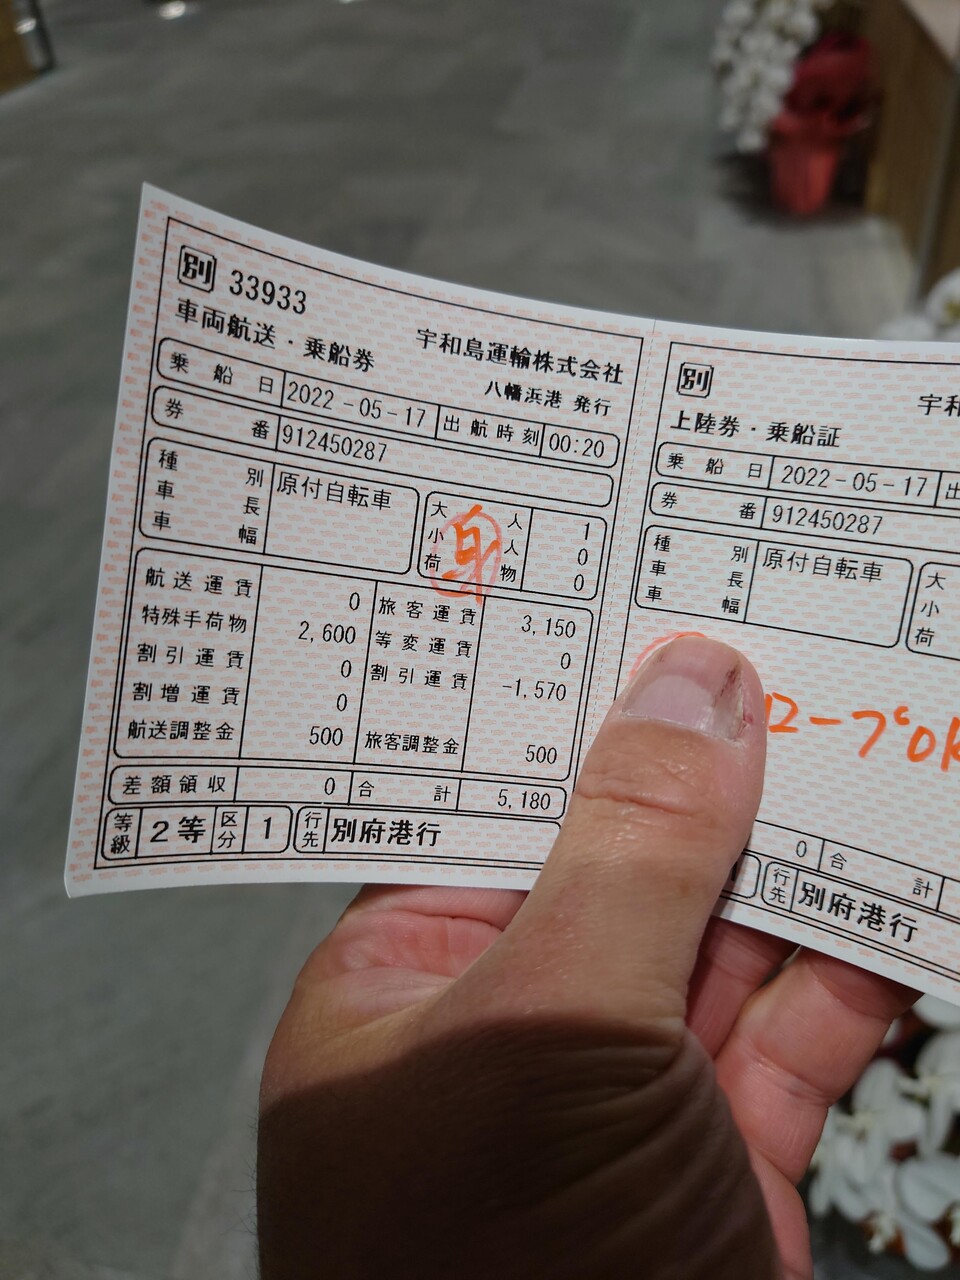 別 33933
車両航送・乗船券
宇和島運輸株式会社
八幡浜港 発行
乗船日 2022-05-17 出航時刻 00:20
券番 912450287
種別 原付自転車
車長
車幅
大人 1
小人 0
荷物 0
身
航送運賃 0 旅客運賃 3,150
特殊手荷物 2,600 等変運賃 0
割引運賃 0 割引運賃 -1,570
割増運賃 0
航送調整金 500 旅客調整金 500
差額領収 0 合計 5,180
等級 2等 区分 1 行先 別府港行
別
宇和
上陸券・乗船証
乗船日 2022-05-17 出
券番 912450287
種別 原付自転車
車長
車幅
大
小
荷
ロープOK
0 合計
行先 別府港行